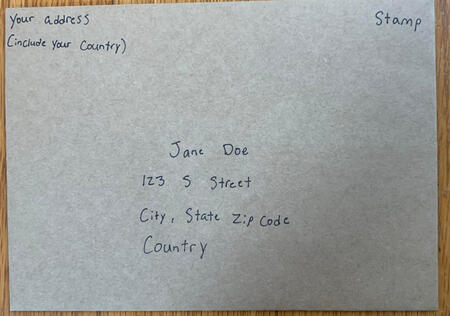 Your address
(include Your Country)
Stamp
Jane Doe
123 S Street
City, State Zip Code
Country